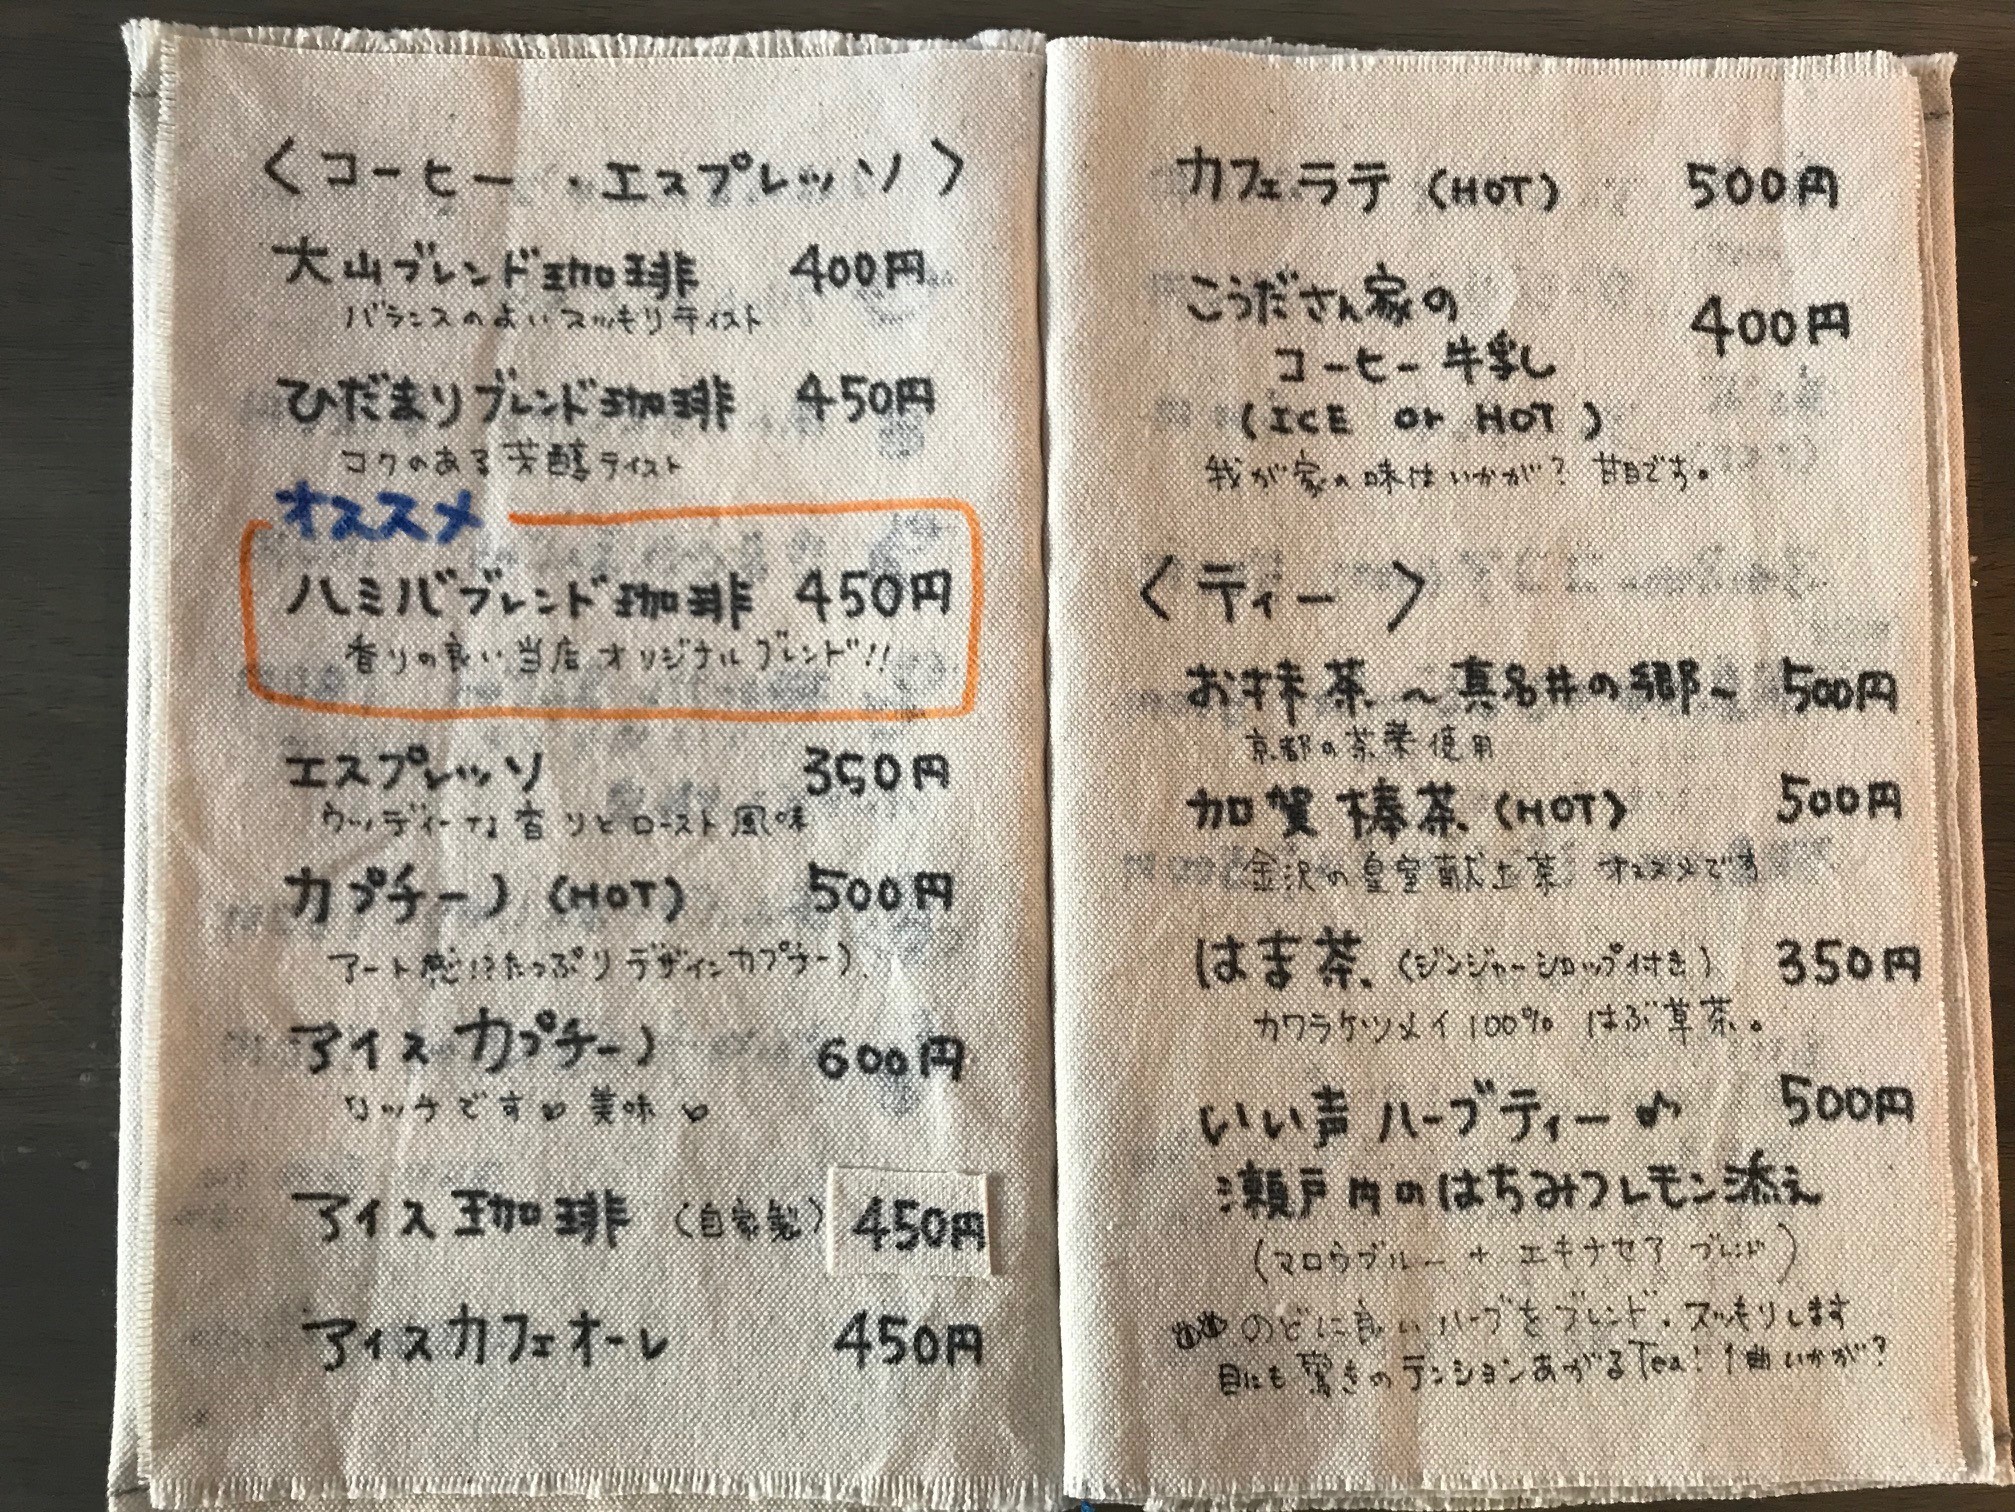 〈コーヒー・エスプレッソ〉
大山ブレンド珈琲 400円
バランスのよいスッキリテイスト
ひだまりブレンド珈琲 450円
コクのある芳醇テイスト
オススメ
ハミババブレンド珈琲 450円
香りの良い当店オリジナルブレンド!!
エスプレッソ 350円
ウッディーな香りとロースト風味
カプチーノ (HOT) 500円
アート感!?たっぷりデザインカプチーノ
アイスカプチーノ 600円
リッチです♡美味♡
アイス珈琲 (自家製) 450円
アイスカフェオーレ 450円
カフェラテ (HOT) 500円
こうださん家の 400円
コーヒー牛乳
(ICE or HOT)
我が家の味はいかが? 甘目です。
〈ティー〉
お抹茶 〜真名井の郷〜 500円
京都の茶葉使用
加賀棒茶 (HOT) 500円
金沢の皇室献上茶 オススメです
はま茶 (ジンジャーシロップ付き) 350円
カワラケツメイ100% はぶ草茶。
いい声ハーブティー♪ 500円
瀬戸内のはちみつレモン添え
(マロウブルー + エキナセア ブレンド)
のどに良いハーブをブレンド。スッキリします
目にも驚きのテンションあがるTea! 1曲いかが?